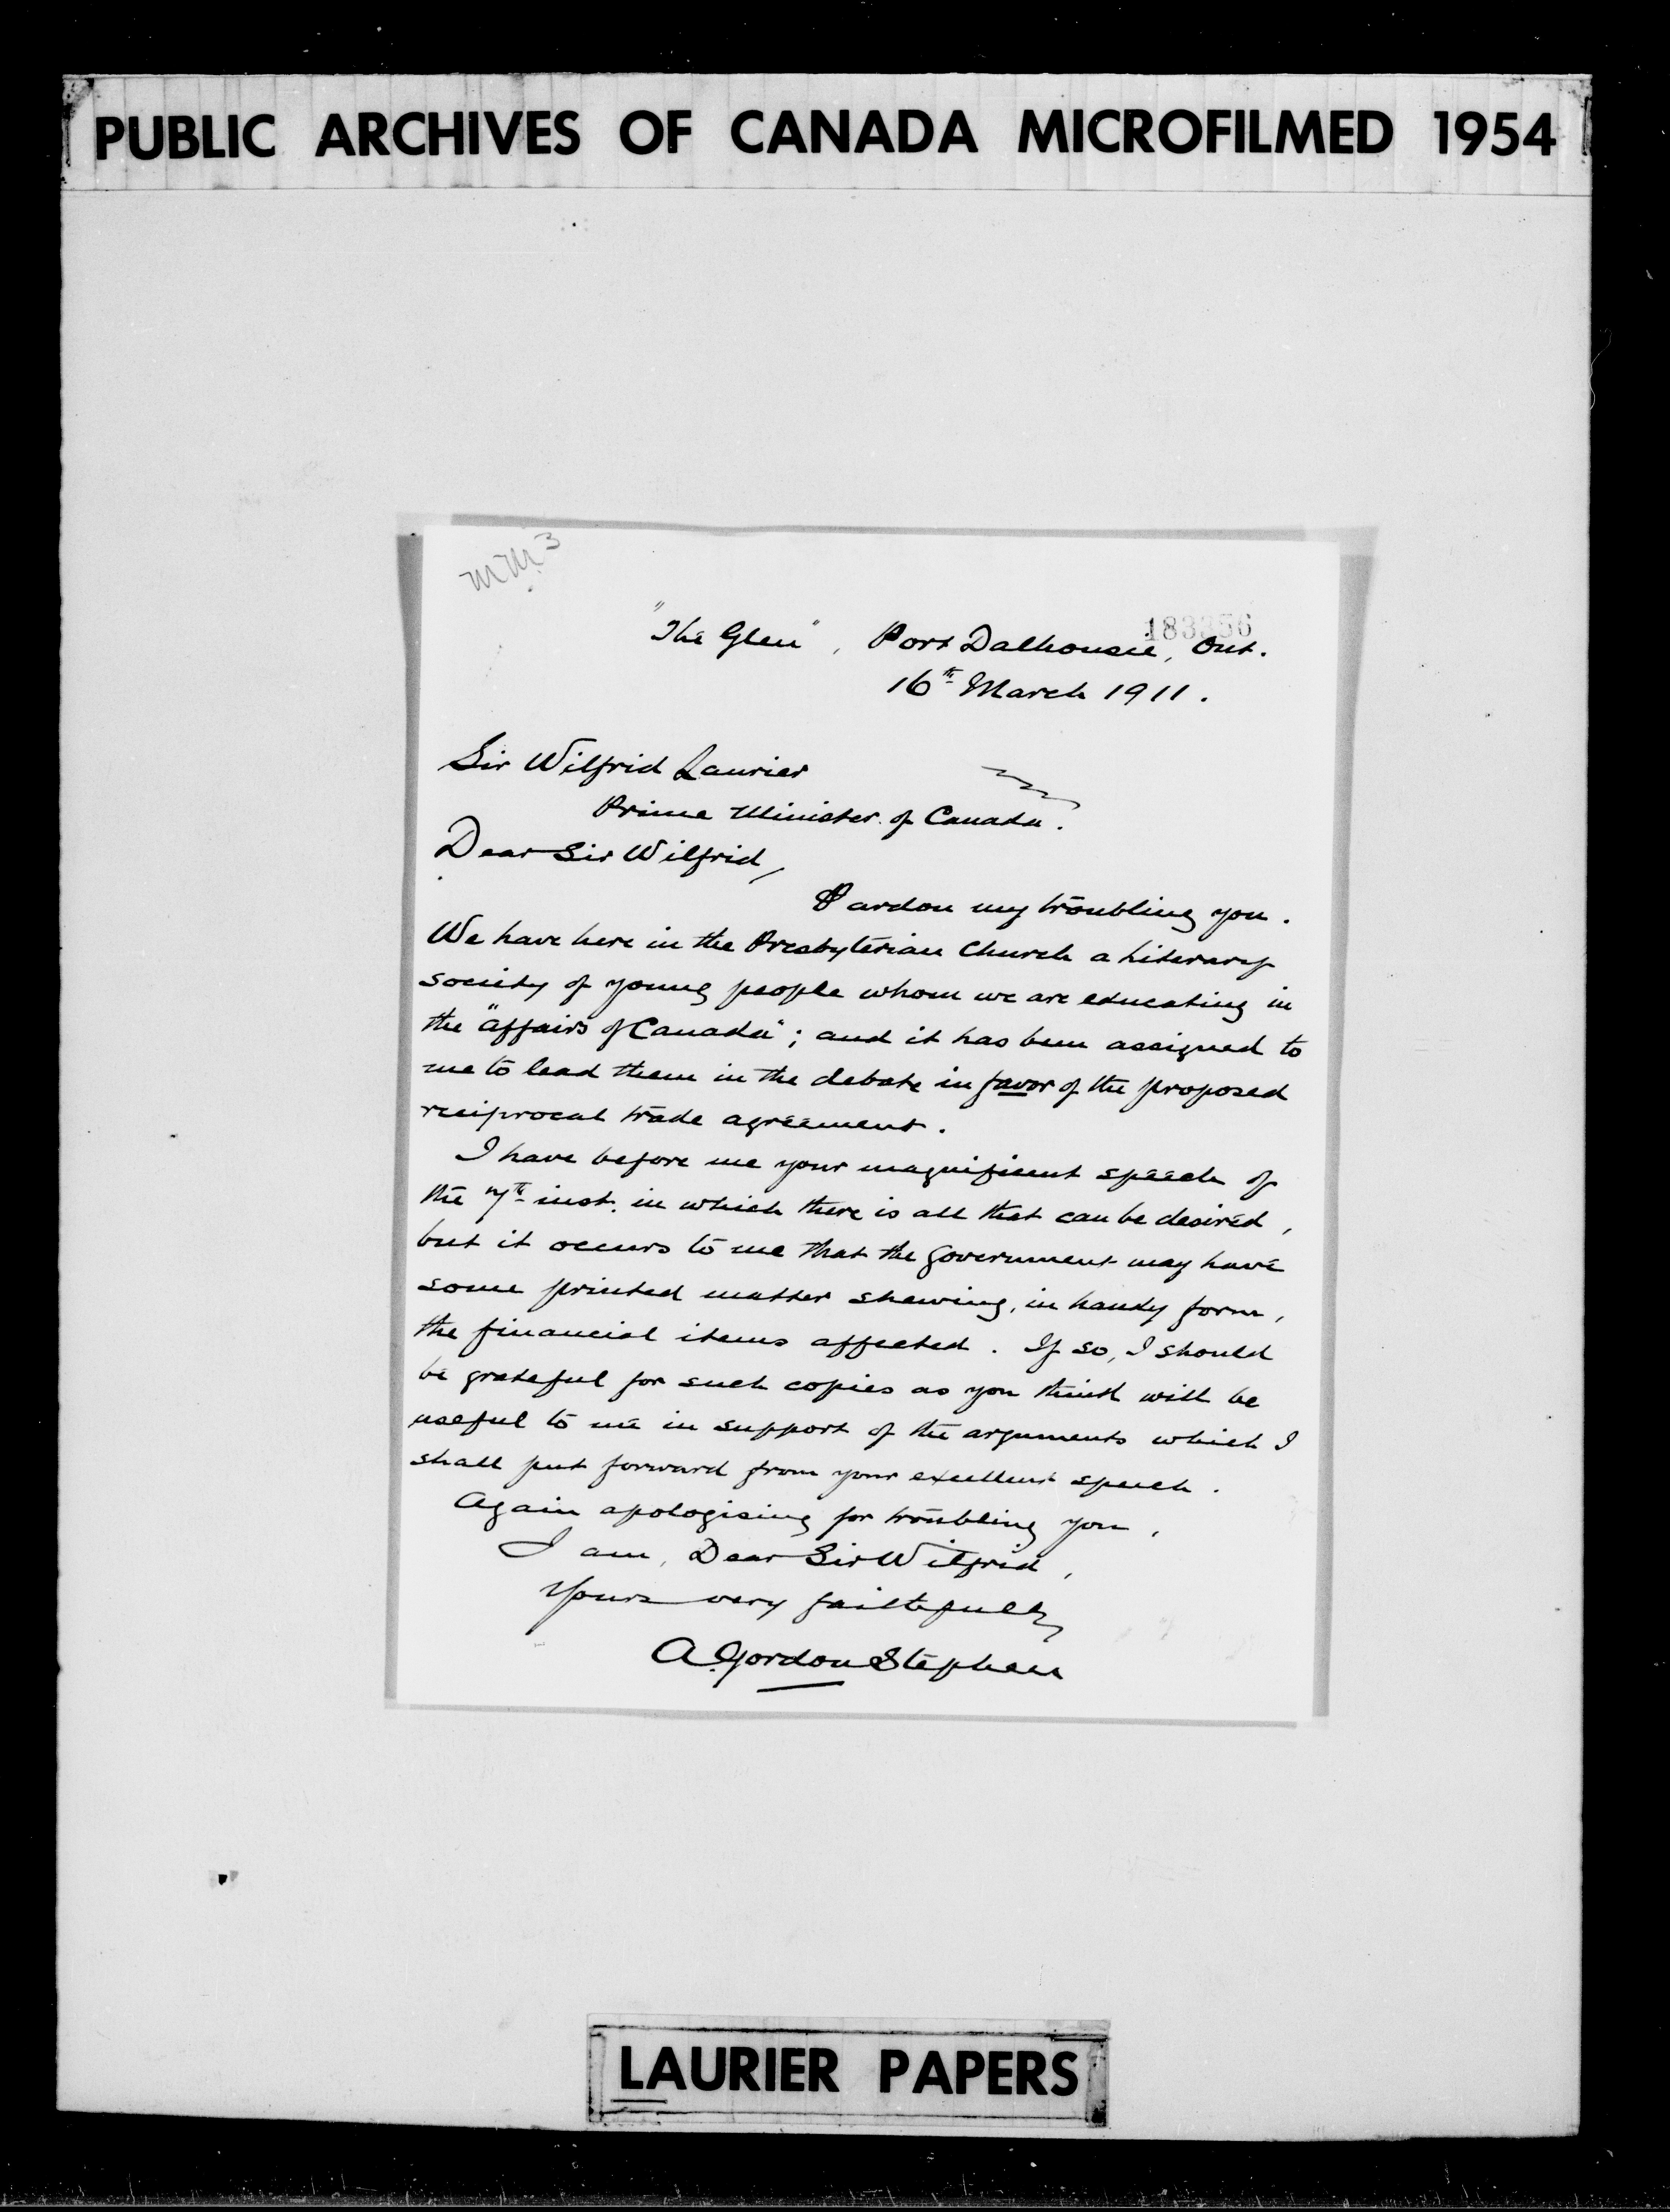 PUBLIC ARCHIVES OF CANADA MICROFILMED 1954
MM 3
183356
"The Glen", Port Dalhousie, Ont.
16th March 1911.
Sir Wilfrid Laurier
Prime Minister of Canada.
Dear Sir Wilfrid,
Pardon my troubling you.
We have here in the Presbyterian Church a literary
society of young people whom we are educating in
the "affairs of Canada"; and it has been assigned to
me to lead them in the debate in favor of the proposed
reciprocal trade agreement.
I have before me your magnificent speech of
the 7th inst. in which there is all that can be desired,
but it occurs to me that the Government may have
some printed matter shewing, in handy form,
the financial items affected. If so, I should
be grateful for such copies as you think will be
useful to me in support of the arguments which I
shall put forward from your excellent speech.
Again apologising for troubling you,
I am, Dear Sir Wilfrid,
Yours very faithfully
A. Gordon Stephen
LAURIER PAPERS